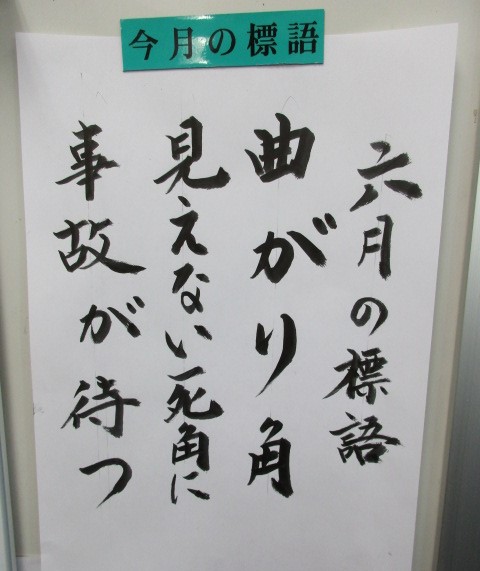 今月の標語
六月の標語
曲がり角
見えない死角に
事故が待つ